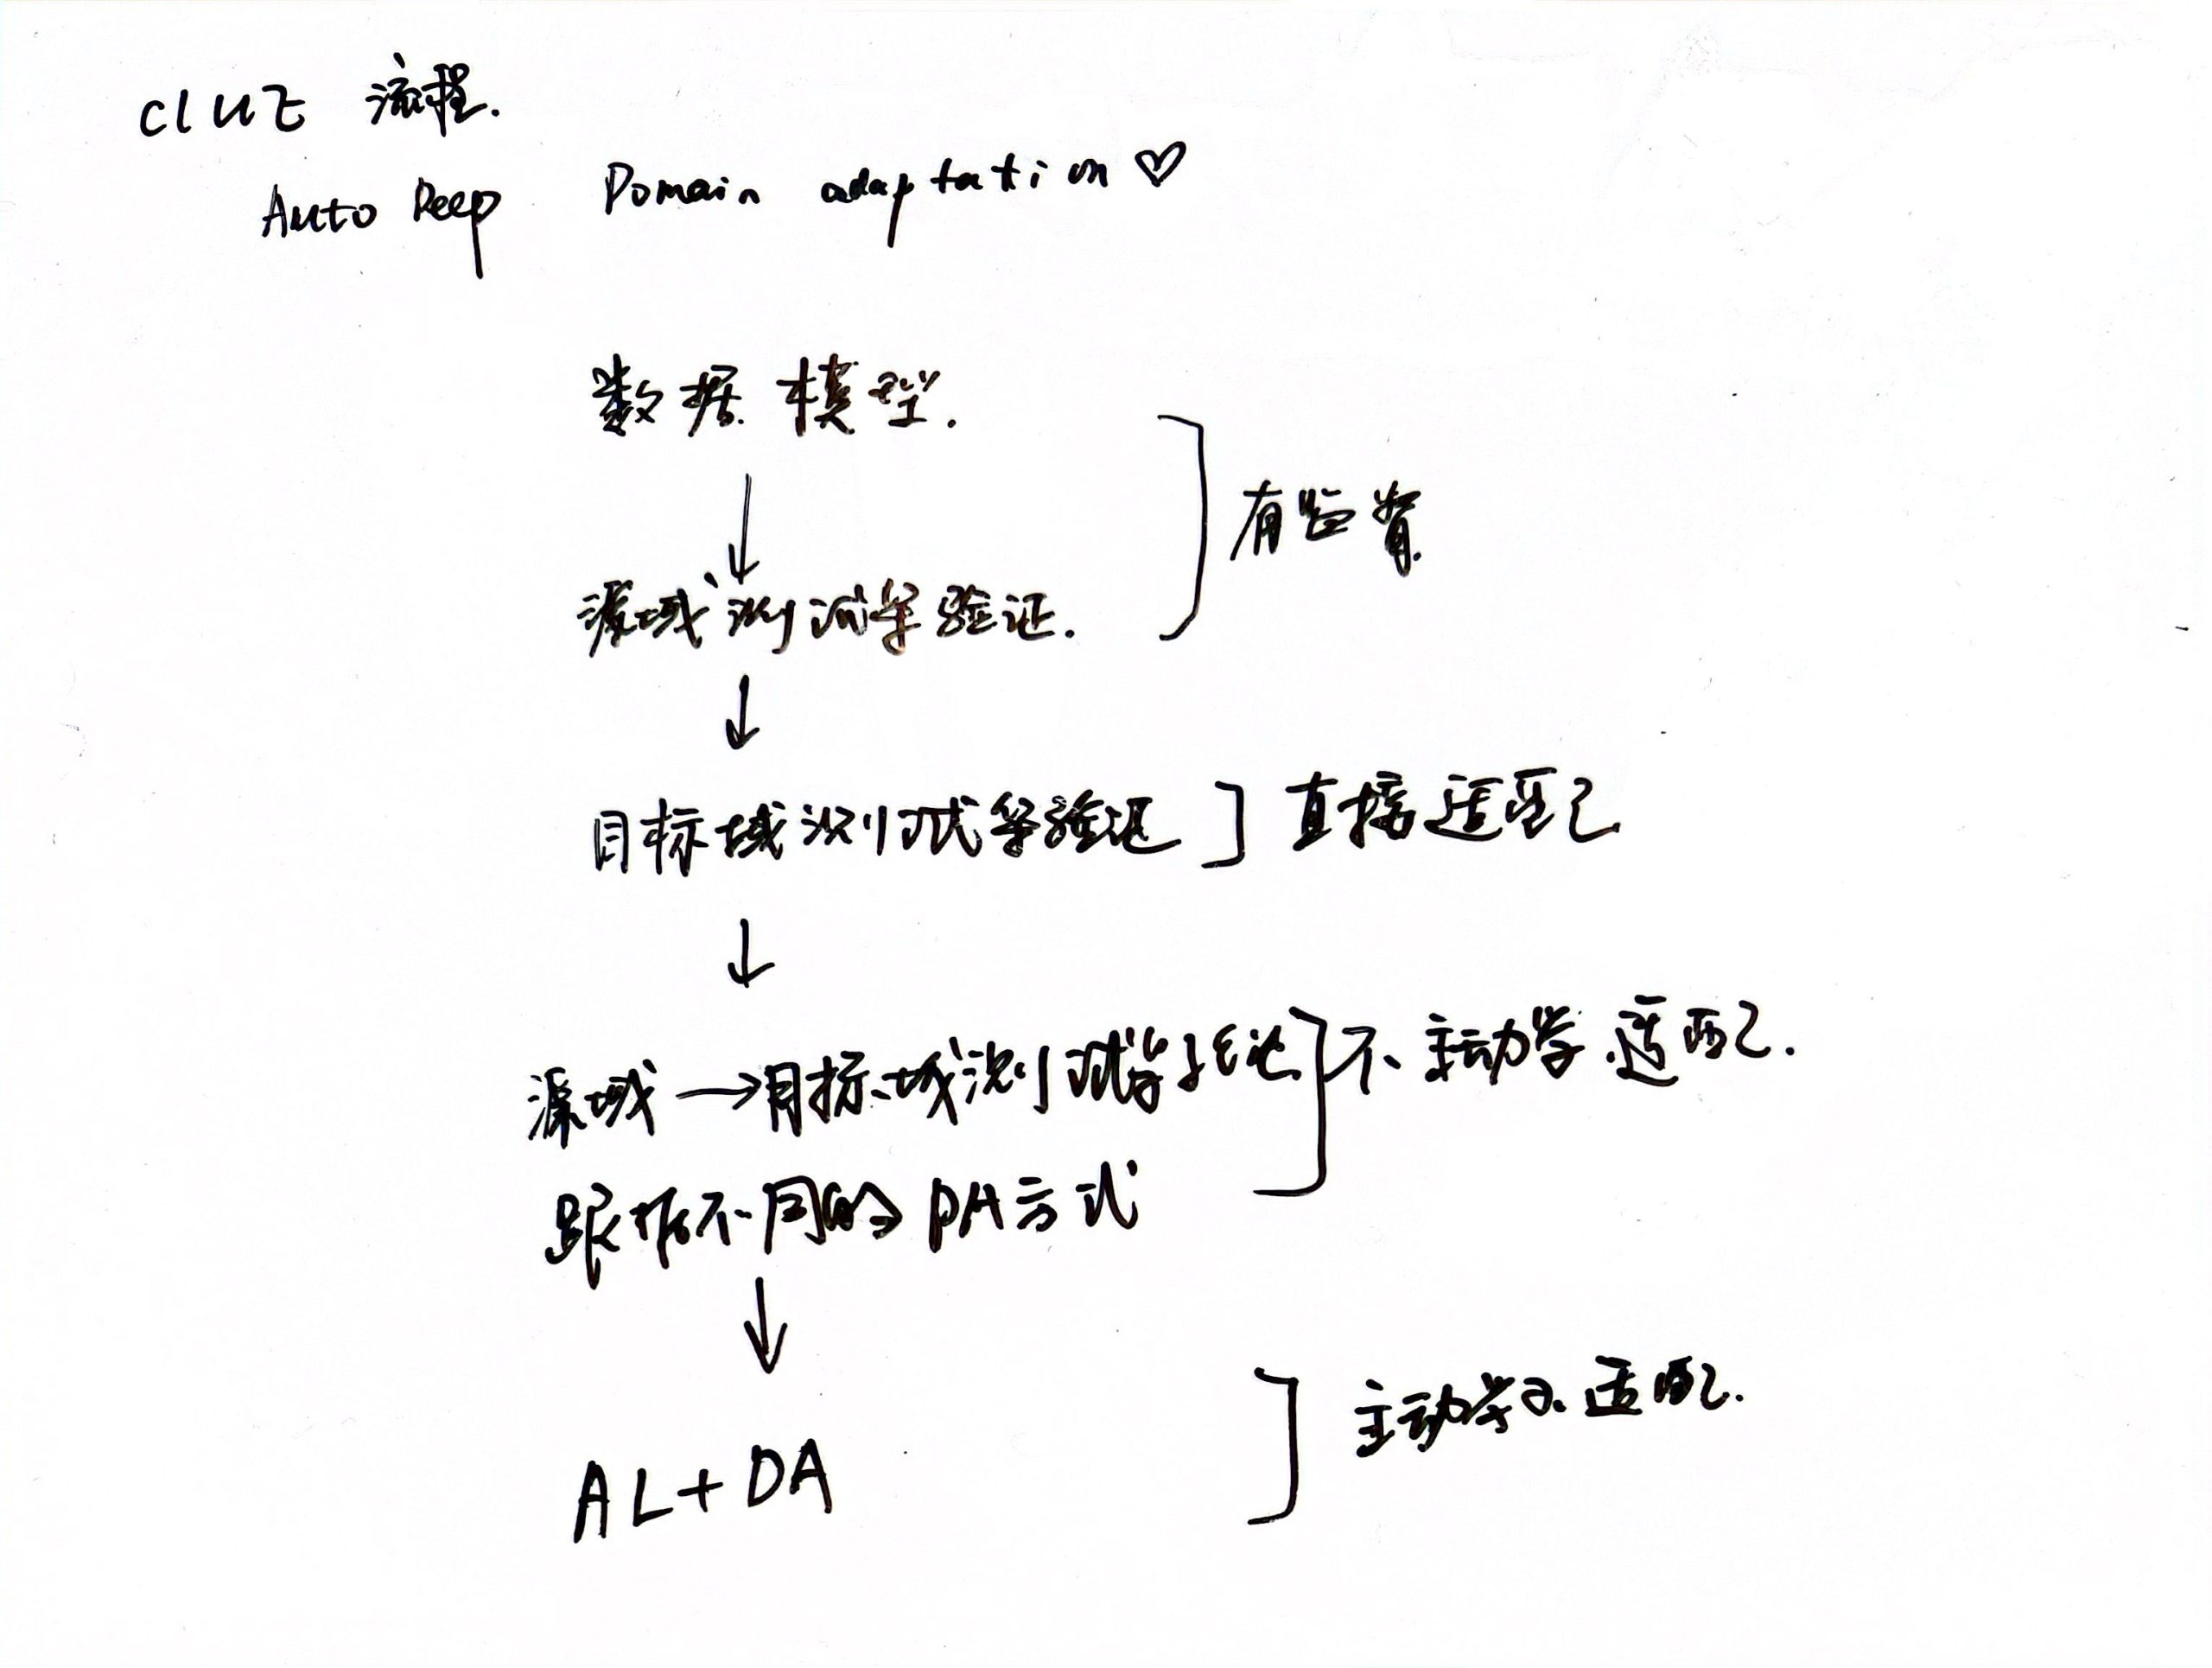 CLUE 流程.
Auto Deep Domain adaptation ♡
数据 模型.
↓
有监督.
源域测试集验证.
↓
目标域测试集验证 ] 直接适配
↓
源域 → 目标域测试集验证 不主动学 适配.
跟据不同的DA方式
↓
主动学习 适配.
AL+DA